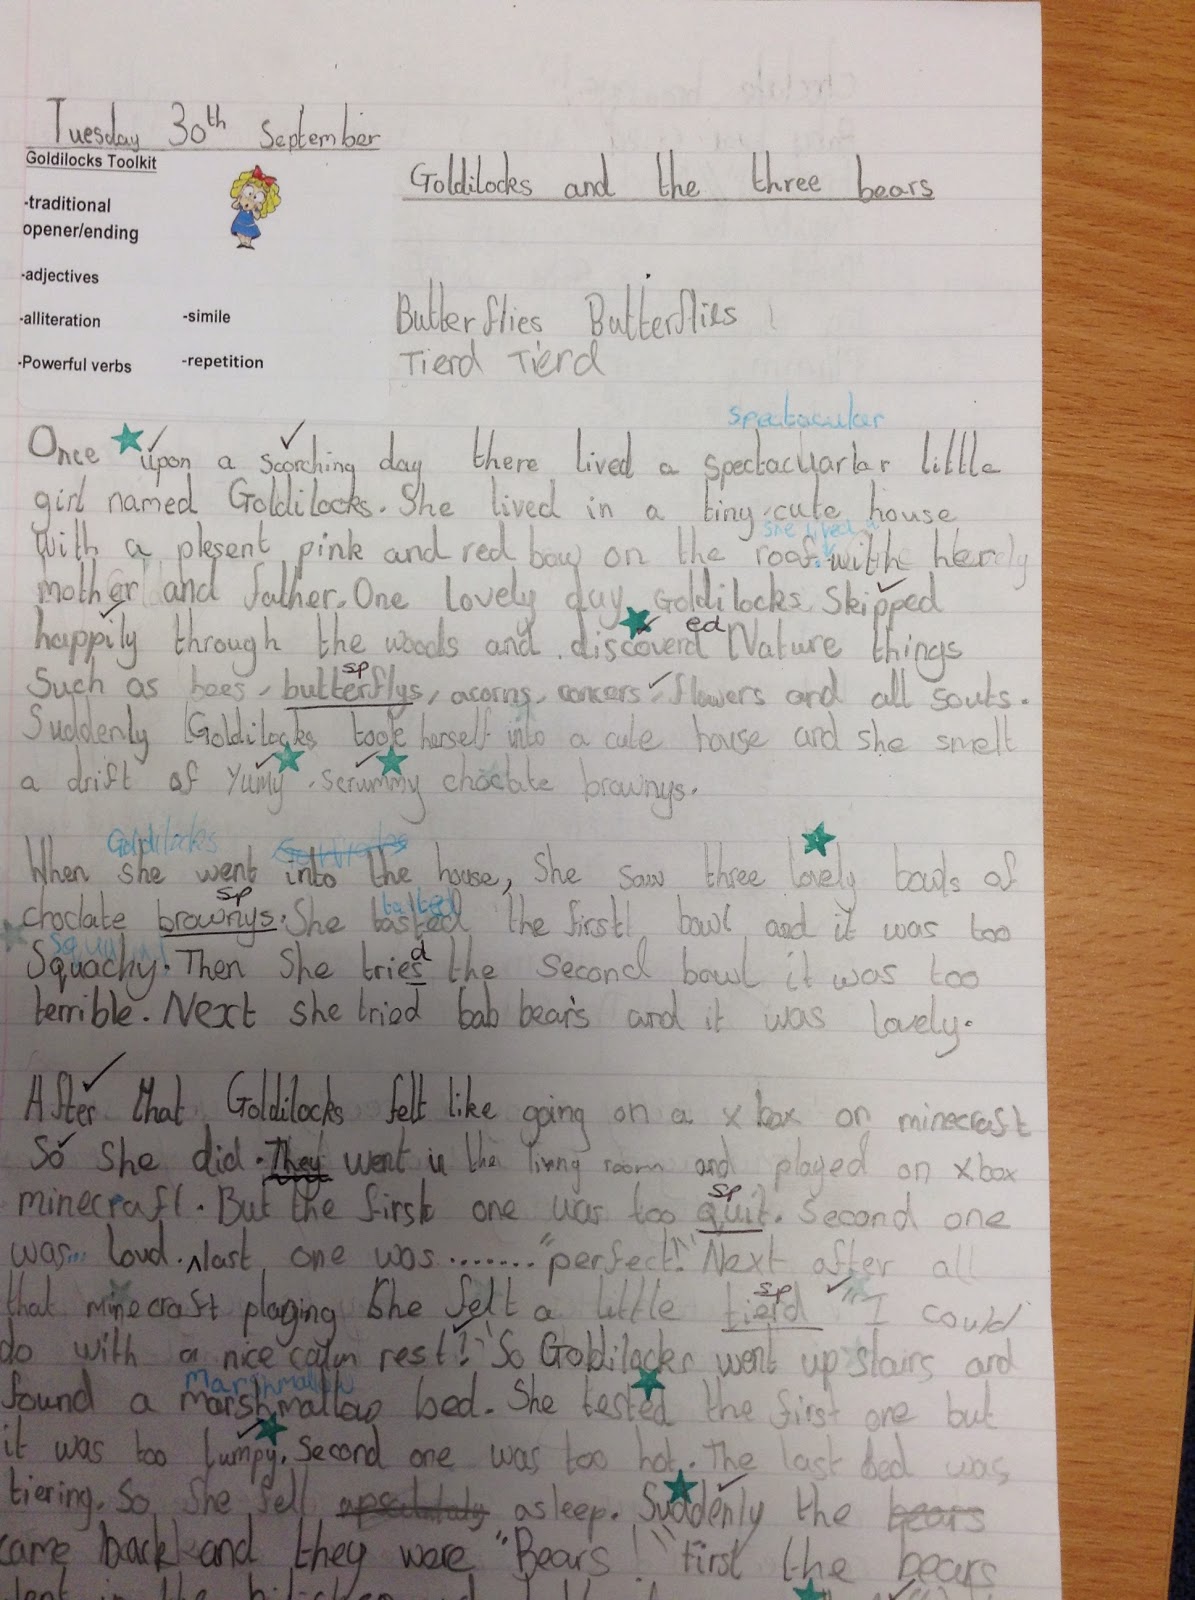 Tuesday 30th September
Goldilocks Toolkit
-traditional
opener/ending
-adjectives
-alliteration -simile
-Powerful verbs -repetition
Goldilocks and the three bears
Butterflies Butterflies
Tierd Tierd
spectacular
Once upon a scorching day there lived a spectacuarlar little
girl named Goldilocks. She lived in a tiny, cute house
she lived
with a plesent pink and red bow on the roof. with her
mother and father. One lovely day Goldilocks Skipped
ed
happily through the woods and discoverd Nature things
sp
Such as bees, butterflys, acorns, concers, flowers and all souts.
Suddenly Goldilocks took herself into a cute house and she smelt
a drift of yumy, scrummy choclate brownys.
Goldilocks
When she went into the house, She saw three lovely bowls of
sp
choclate brownys. She tasted the first bowl and it was too
d
Squachy. Then She tries the second bowl it was too
terrible. Next she tried bab bears and it was lovely.
After that Goldilocks felt like going on a x box on minecraft
So she did. They went in the living room and played on xbox
sp
minecraft. But the first one was too quit. Second one
was... loud. last one was........"perfect!" Next after all
sp
that minecraft playing she felt a little tierd "I could
do with a nice calm rest!" So Goldilocks went up stairs and
Marshmallow
found a marshmallow bed. She tested the first one but
it was too lumpy. Second one was too hot. The last bed was
tiering. So She fell asleep. Suddenly the bears
came back and they were "Bears!" first the bears